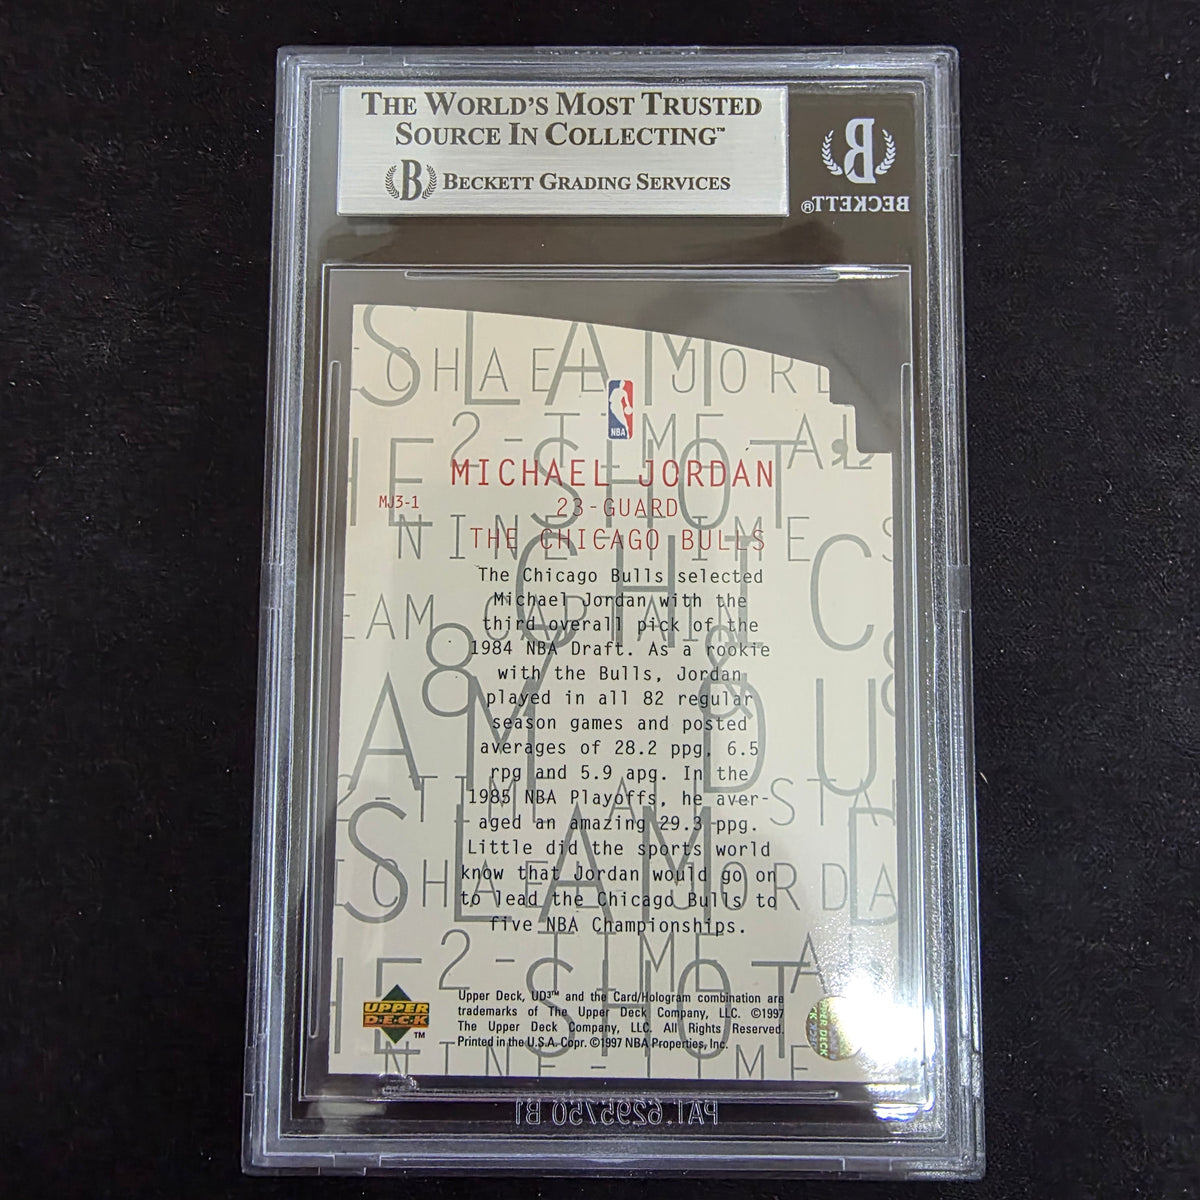 THE WORLD'S MOST TRUSTED
SOURCE IN COLLECTING™
B BECKETT GRADING SERVICES
B
BECKETT®
SLAM
CHAEL JORD
2-TIME AL
HE SHOT
NBA
MICHAEL JORDAN
MJ3-1
23-GUARD
THE CHICAGO BULLS
NINE-TIME S
CHIC
The Chicago Bulls selected
Michael Jordan with the
third overall pick of the
1984 NBA Draft. As a rookie
with the Bulls, Jordan
played in all 82 regular
season games and posted
averages of 28.2 ppg, 6.5
rpg and 5.9 apg. In the
1985 NBA Playoffs, he aver-
aged an amazing 29.3 ppg.
Little did the sports world
know that Jordan would go on
to lead the Chicago Bulls to
five NBA Championships.
EAM CAPTAIN
8 & 8
AM DU
2-TIME ALL-STA
SLAM D
CHAEL JORDA
2-TIME AL
HE SHOT
NINE-TIME
UPPER
DECK
™
Upper Deck, UD3™ and the Card/Hologram combination are
trademarks of The Upper Deck Company, LLC. ©1997
The Upper Deck Company, LLC. All Rights Reserved.
Printed in the U.S.A. Copr. ©1997 NBA Properties, Inc.
PAT. 6295750 B1